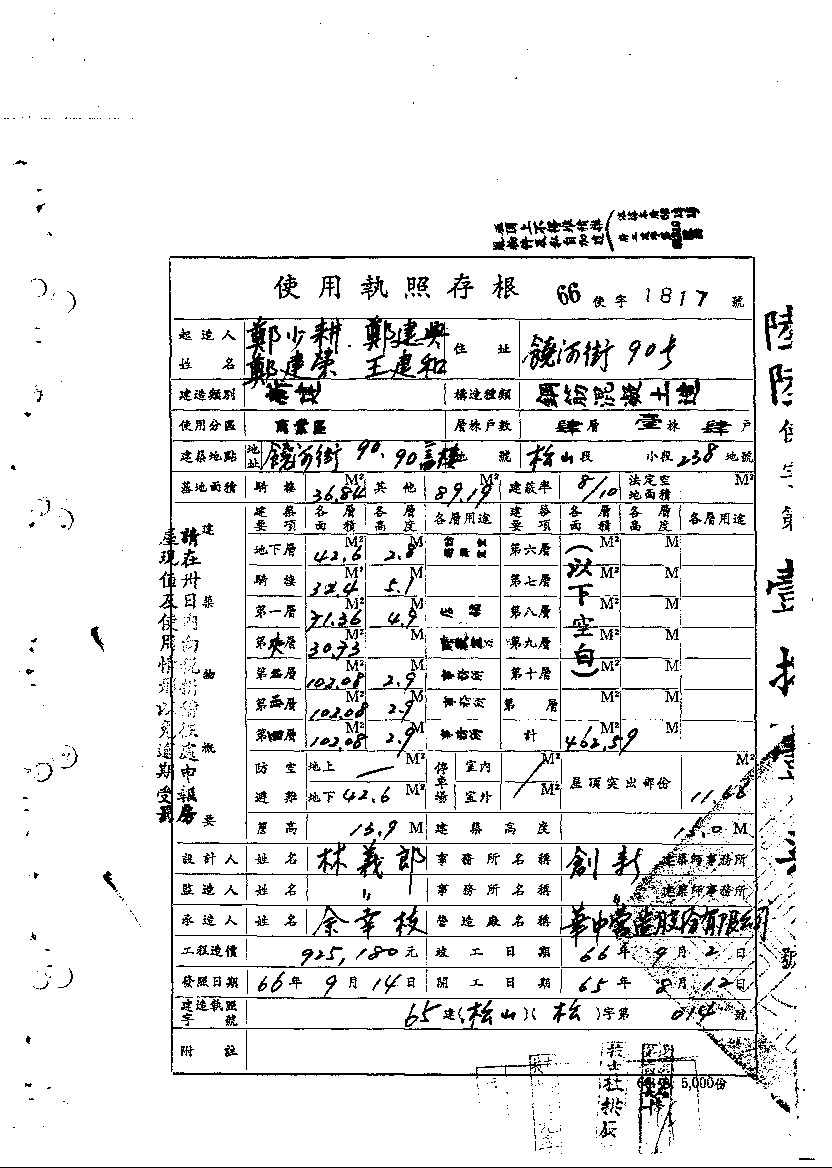 使用執照存根 66 使字 1817 號
起造人姓名 鄭少耕 鄭建興 鄭建榮 王建和 住址 饒河街90号
建造類別 構造種類 鋼筋混凝土造
使用分區 商業區 層棟戶數 肆層 壹棟 肆戶
建築地點 地址 饒河街90. 90 地號 松山段 小段238地號
基地面積 騎樓 36.84 M² 其他 89.19 M² 建蔽率 8/10 法定空地面積 M²
建築要項 各層面積 各層高度 各層用途 建築要項 各層面積 各層高度 各層用途
建築物概要
地下層 42.6 M² 2.8 M 第六層 M² M
騎樓 32.4 M² 5.1 M 第七層 M² M
第一層 71.36 M² 4.9 M 第八層 M² M
第夾層 30.73 M² M 第九層 M² M
第二層 102.08 M² 2.9 M 第十層 M² M
第三層 102.08 M² 2.9 M 第 層 M² M
第四層 102.08 M² 2.9 M 計 462.59 M² M
(以下空白)
防空避難 地上 — M² 停車場 室內 M² 屋頂突出部份 11.66 M²
地下 42.6 M² 室外 M²
簷高 13.9 M 建築高度 15.0 M
設計人 姓名 林義郎 事務所名稱 創新 建築師事務所
監造人 姓名 〃 事務所名稱 〃 建築師事務所
承造人 姓名 余幸枝 營造廠名稱 華中營造股份有限公司
工程造價 925,180元 竣工日期 66年9月2日
發照日期 66年9月14日 開工日期 65年8月12日
建造執照字號 65建(松山)(松)字第 014 號
附註
請在卅日內向稅捐稽征處申報房
屋現值及使用情形以免逾期受罰
陸陸使字第壹
號
5,000份